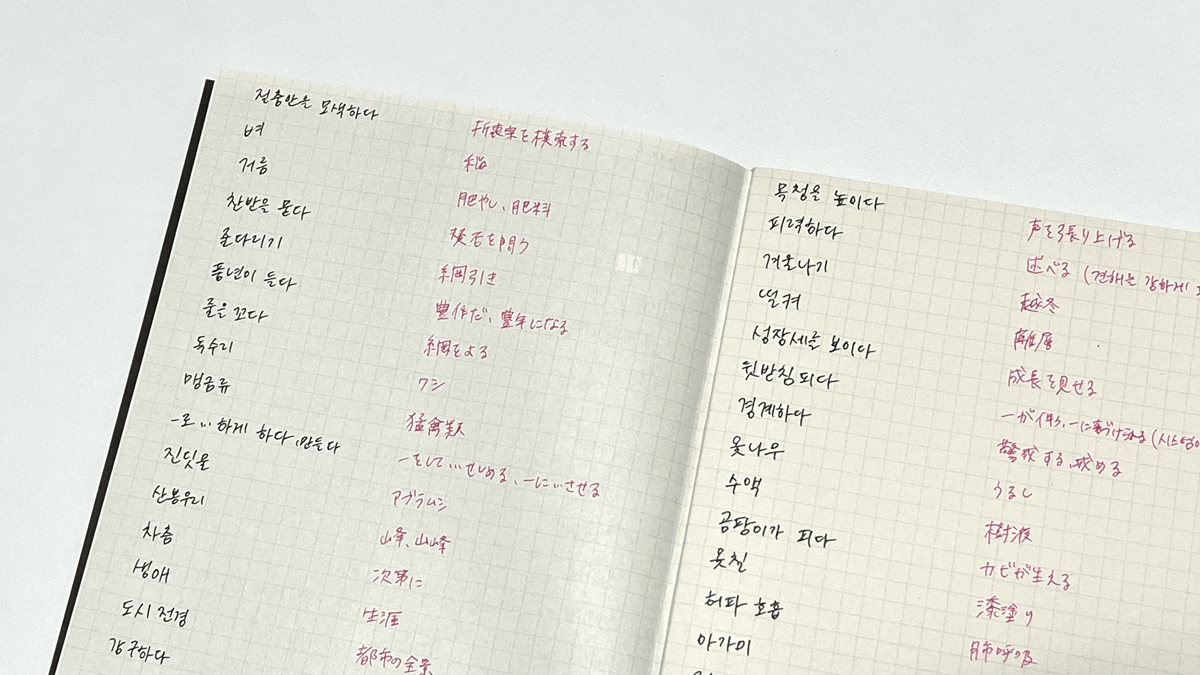 절충안을 모색하다 折衷案を模索する
벼 稲
거름 肥やし、肥料
찬반을 묻다 賛否を問う
줄다리기 綱引き
풍년이 들다 豊作だ、豊年になる
줄을 꼬다 綱をよる
독수리 ワシ
맹금류 猛禽類
-로 … 하게 하다, 만들다 -をして…せしめる、-に…させる
진딧물 アブラムシ
산봉우리 峰、山峰
차츰 次第に
생애 生涯
도시 전경 都市の全景
강구하다
목청을 높이다 声を張り上げる
피력하다 述べる (견해를 강하게
겨울나기 越冬
떨켜 離層
성장세를 보이다 成長を見せる
뒷받침되다 -が伴う、-に裏づけられる (시스템이
경계하다 警戒する、戒める
옻나무 うるし
수액 樹液
곰팡이가 피다 カビが生える
옻칠 漆塗り
허파 호흡 肺呼吸
아가미